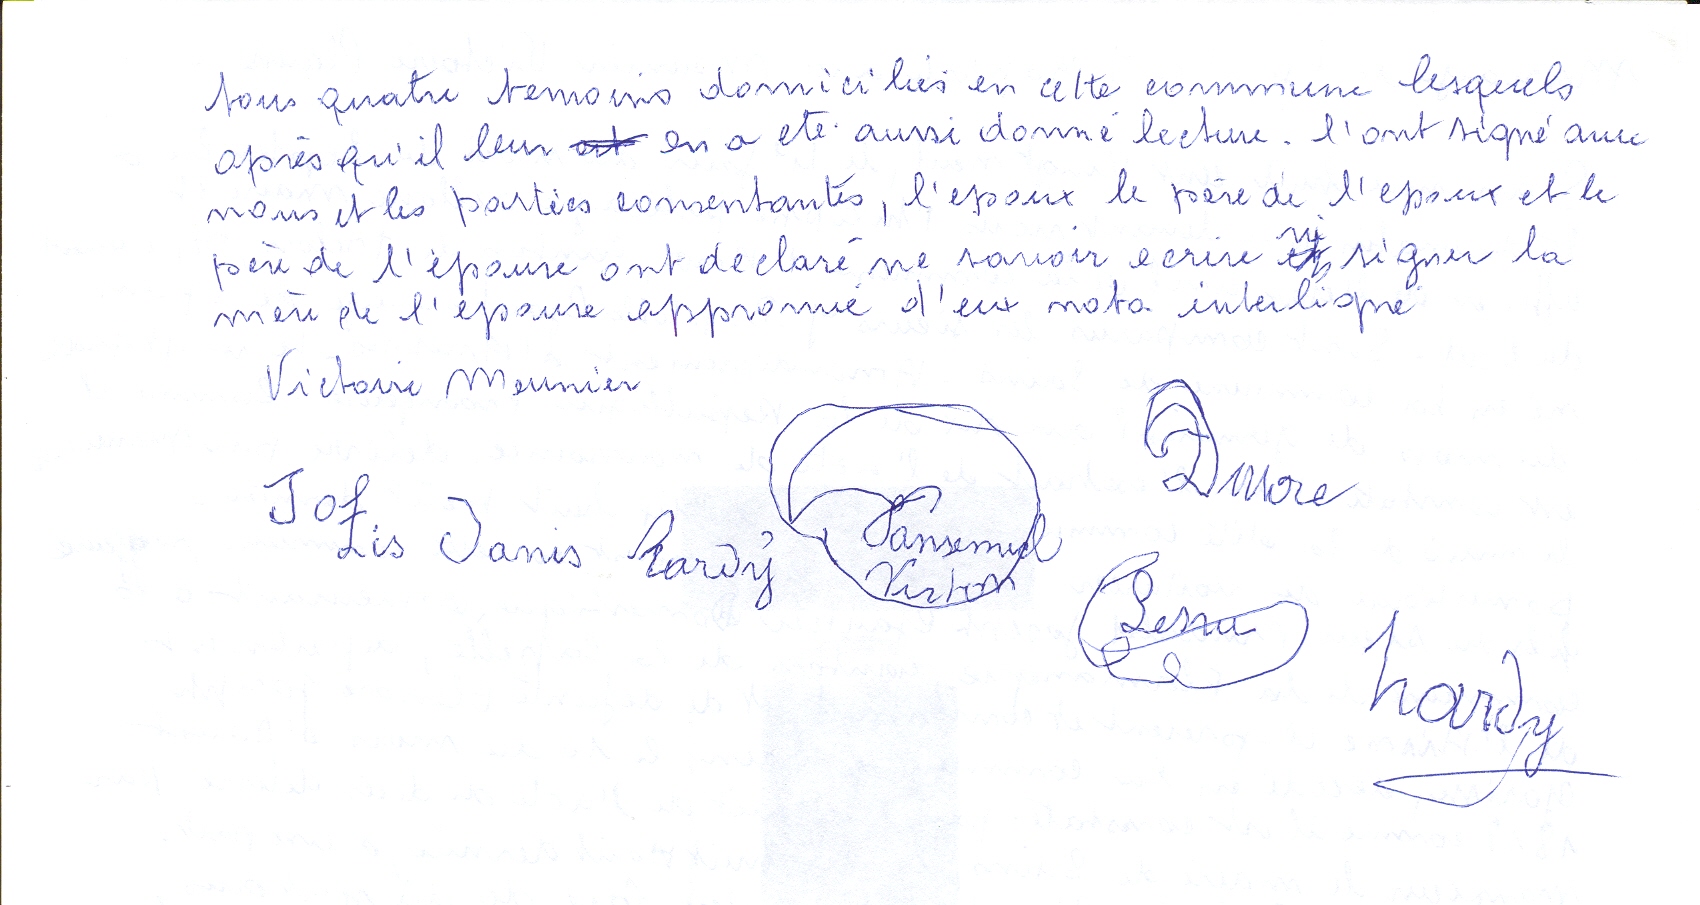 tous quatre temoins domiciliés en cette commune lesquels
après qu'il leur en a eté aussi donné lecture. l'ont signé avec
nous et les parties consentantes, l'epoux le père de l'epoux et le
père de l'épouse ont declaré ne savoir ecrire ni signer la
mère de l'epouse approuvé d'eux nota interligné
Victoire Meunier
Jof
Lis Janis hardÿ
Vansemul
Virton
Dmore
hardy